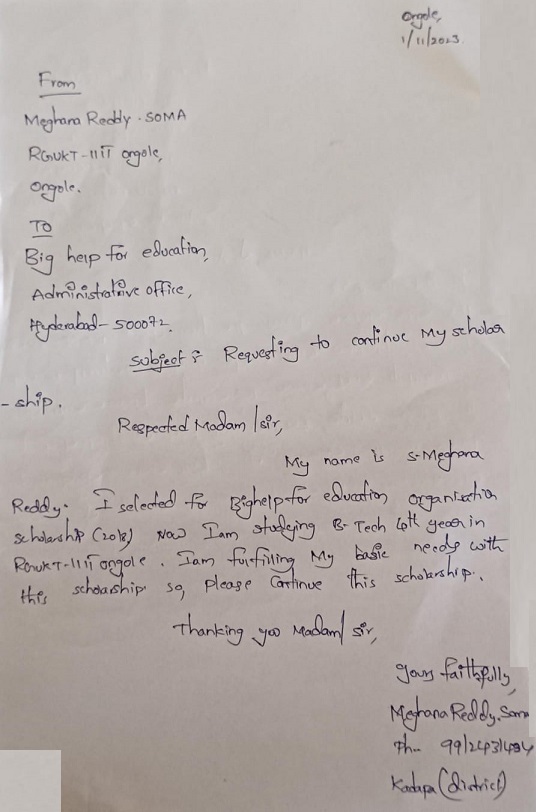 Ongole,
1/11/2023.
From
Meghana Reddy . SOMA
RGUKT-IIIT ongole,
ongole.
To
Big help for education,
Administrative office,
Hyderabad- 500072.
Subject :- Requesting to continue My scholar
- ship.
Respected Madam /sir,
My name is S. Meghana
Reddy. I selected for Bighelp for education organisation
scholarship (2018) Now I am studying B-Tech 4th year in
RGUKT-IIIT ongole . I am fulfilling My basic needs with
this scholarship. so, please continue this scholarship.
Thanking you Madam/ sir,
yours faithfully,
Meghana Reddy. Soma
Ph..
Kadapa (district)